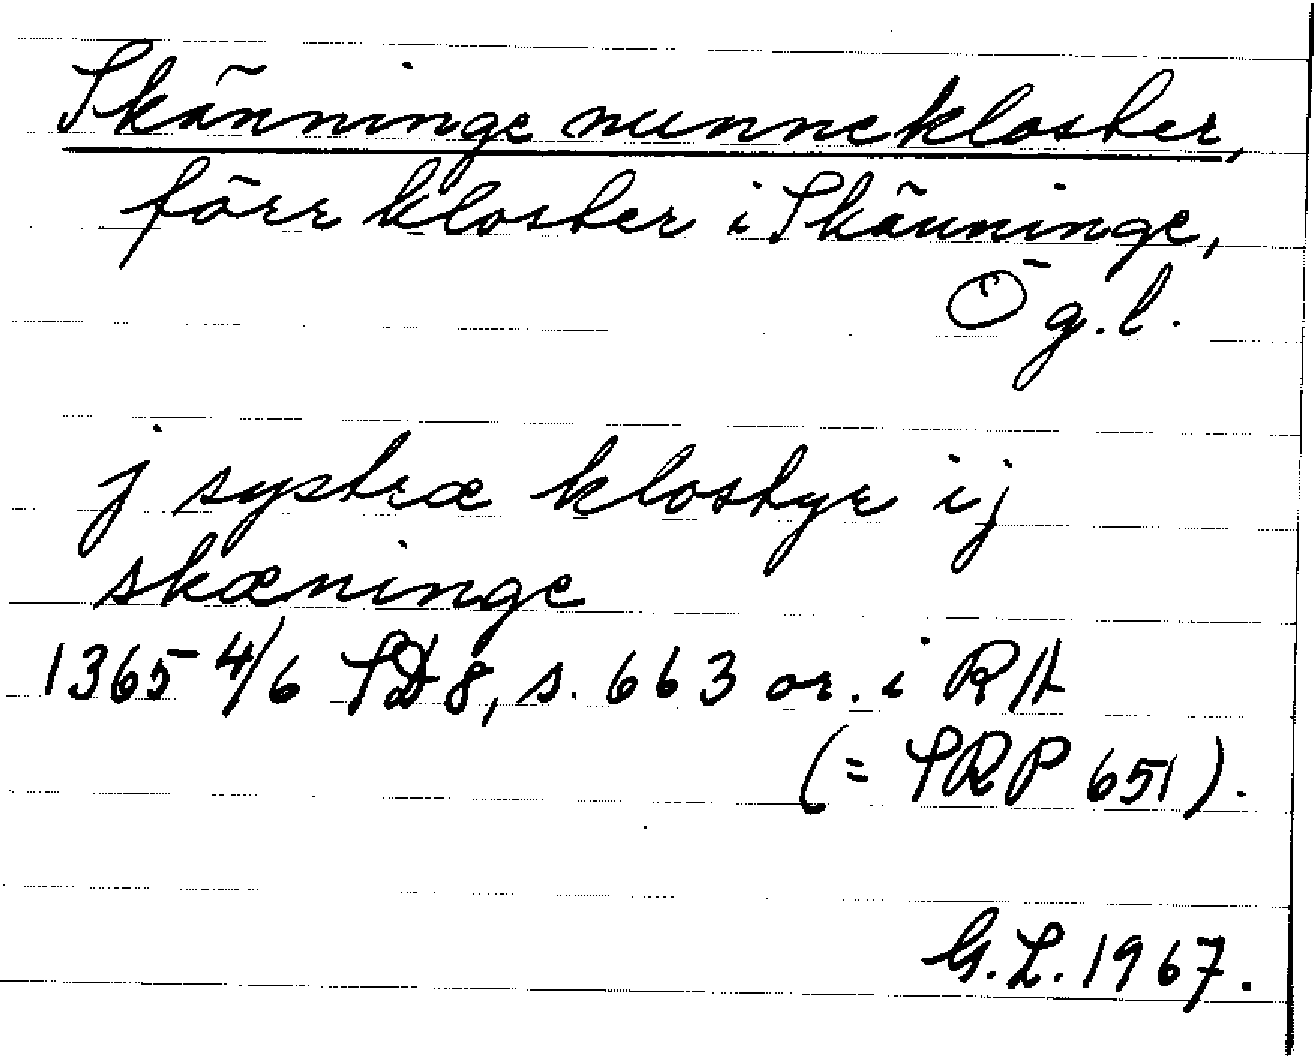 Skänninge nunnekloster,
förr kloster i Skänninge,
Ög.l.
j systræ klostyr ij
skæninge
1365 4/6 SD 8, s. 663 or. i RA
(= SRP 651).
G.L. 1967.